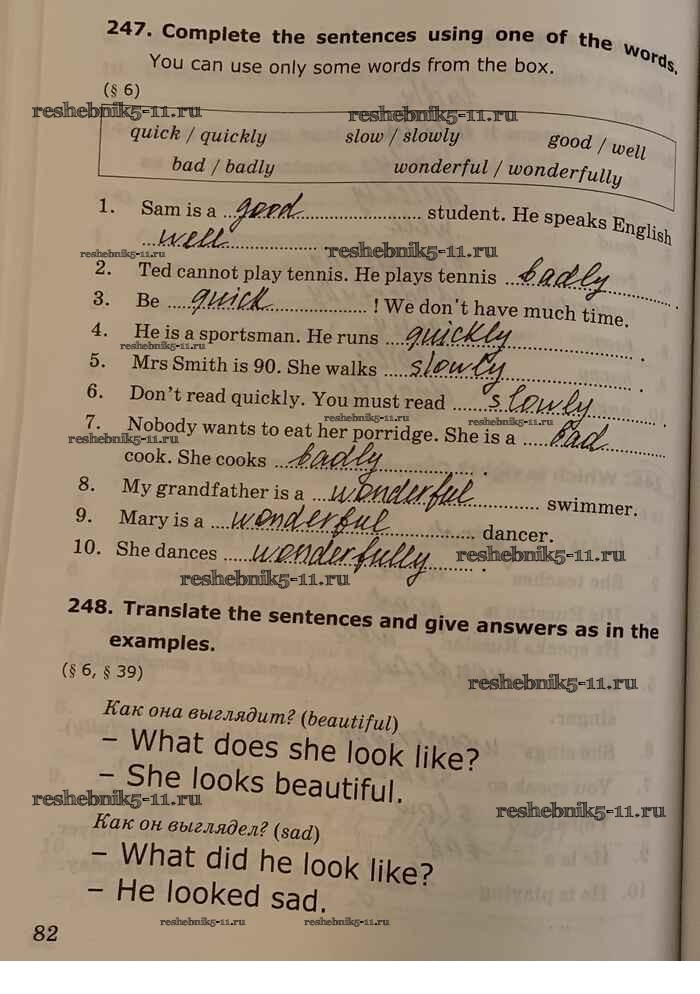 247. Complete the sentences using one of the words.
You can use only some words from the box.
(§ 6)
reshebnik5-11.ru reshebnik5-11.ru
quick / quickly slow / slowly good / well
bad / badly wonderful / wonderfully
1. Sam is a ...good... student. He speaks English
...well... .
reshebnik5-11.ru reshebnik5-11.ru
2. Ted cannot play tennis. He plays tennis ...badly... .
3. Be ...quick... ! We don't have much time.
4. He is a sportsman. He runs ...quickly... .
reshebnik5-11.ru
5. Mrs Smith is 90. She walks ...slowly... .
6. Don't read quickly. You must read ...slowly... .
reshebnik5-11.ru reshebnik5-11.ru
7. Nobody wants to eat her porridge. She is a ...bad...
reshebnik5-11.ru
cook. She cooks ...badly... .
8. My grandfather is a ...wonderful... swimmer.
9. Mary is a ...wonderful... dancer.
10. She dances ...wonderfully... .
reshebnik5-11.ru
reshebnik5-11.ru
248. Translate the sentences and give answers as in the
examples.
(§ 6, § 39)
reshebnik5-11.ru
Как она выглядит? (beautiful)
– What does she look like?
– She looks beautiful.
reshebnik5-11.ru reshebnik5-11.ru
Как он выглядел? (sad)
– What did he look like?
– He looked sad.
reshebnik5-11.ru reshebnik5-11.ru
82